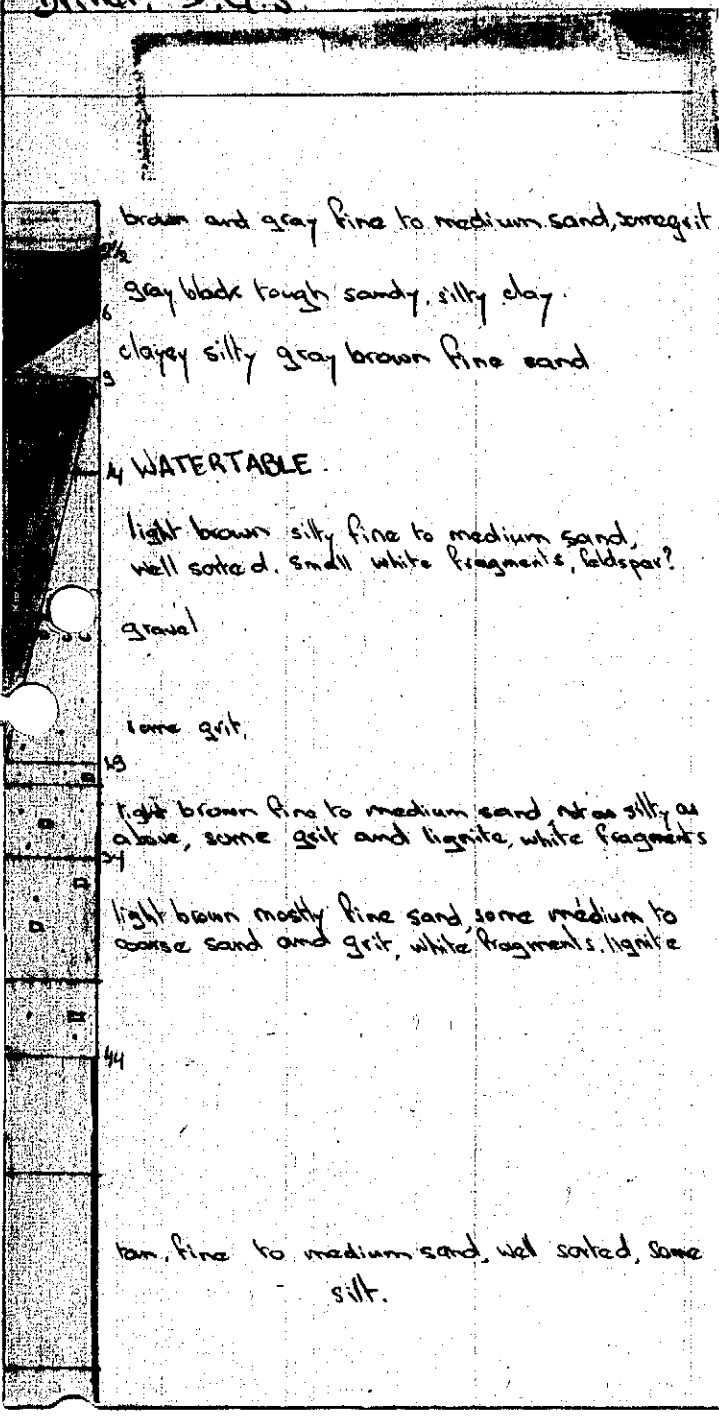 brown and gray fine to medium sand, some grit
2½
gray black tough sandy, silty clay.
6
clayey silty gray brown fine sand
9
14 WATERTABLE.
light brown silty fine to medium sand,
well sorted. Small white fragments, feldspar?
gravel
some grit,
19
light brown fine to medium sand, not as silty as
above, some grit and lignite, white fragments
24
light brown mostly fine sand, some medium to
coarse sand and grit, white fragments, lignite
44
tan, fine to medium sand, well sorted, some
silt.